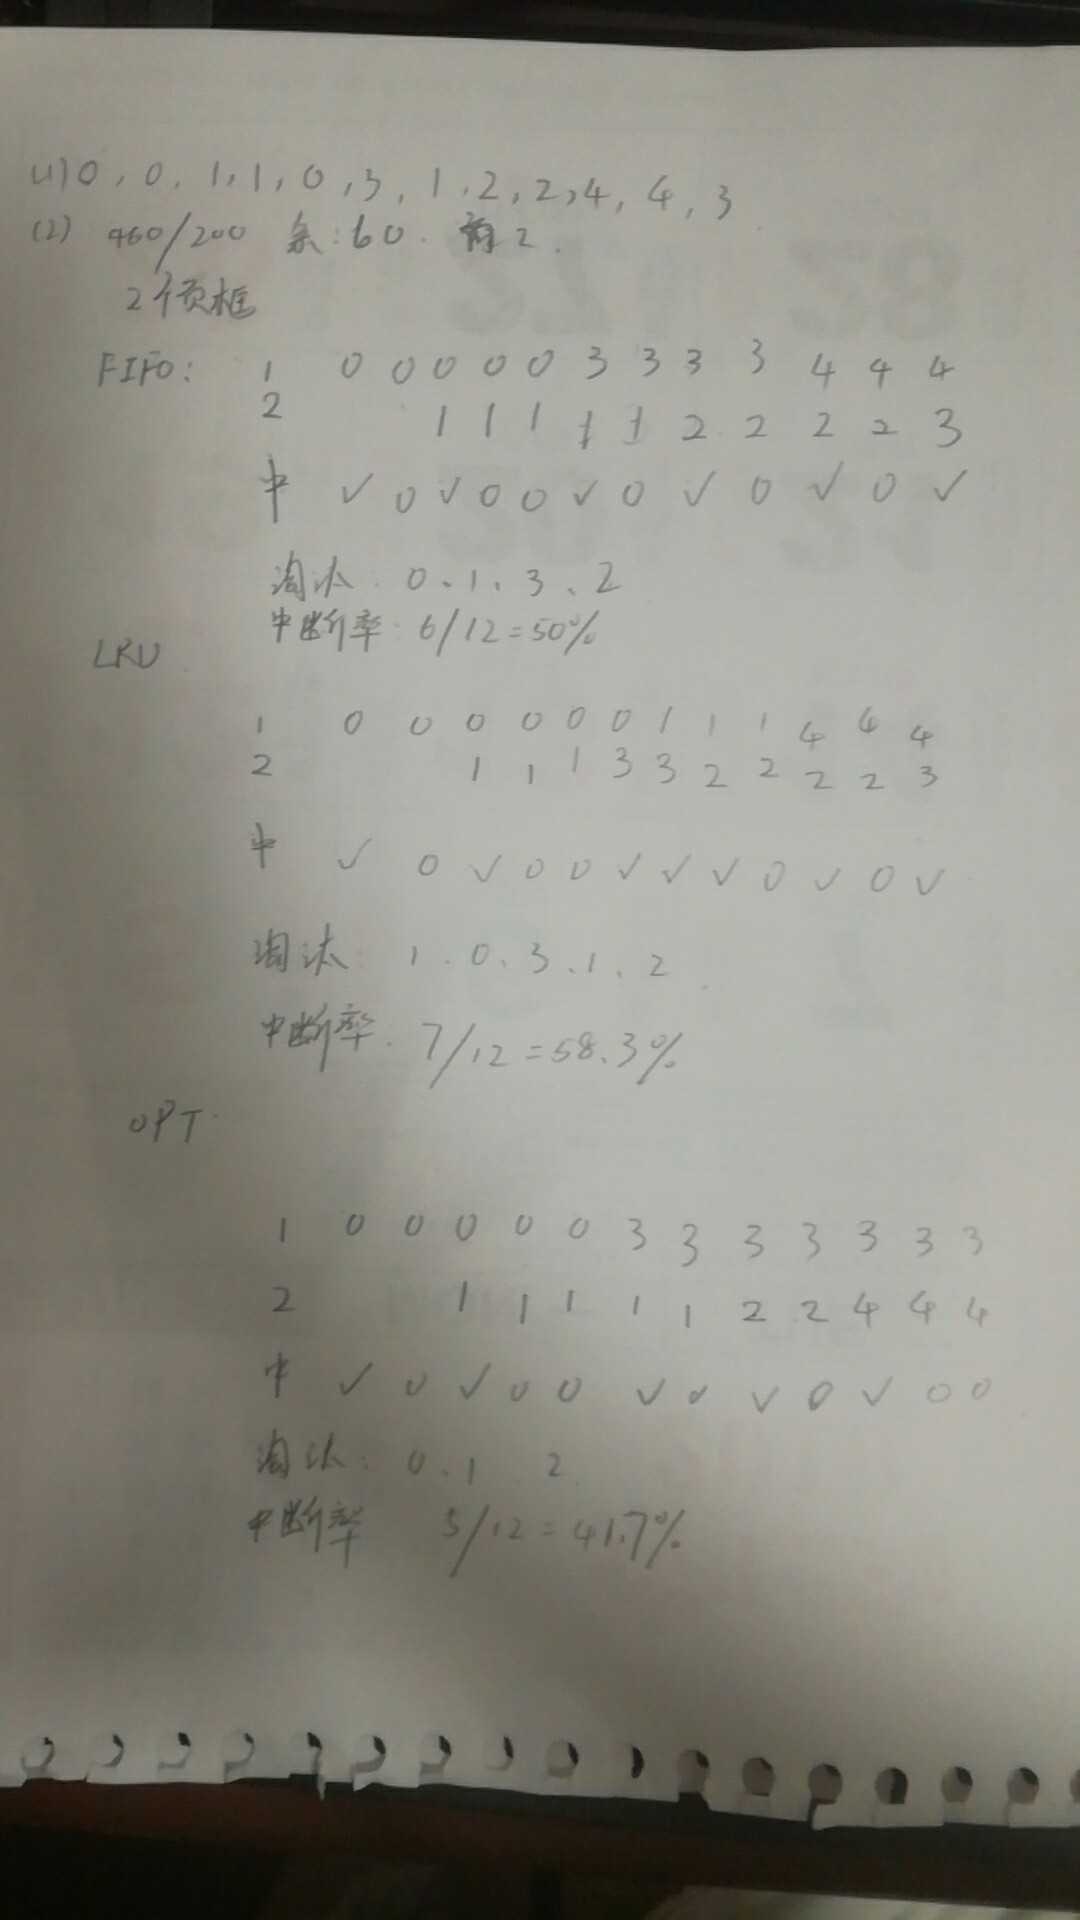 (1) 0, 0, 1, 1, 0, 3, 1, 2, 2, 4, 4, 3
(2) 460/200 余:60. 有2.
2个页框
FIFO: 1 0 0 0 0 0 3 3 3 3 4 4 4
2 1 1 1 1 1 2 2 2 2 3
中 ✓ 0 ✓ 0 0 ✓ 0 ✓ 0 ✓ 0 ✓
淘汰: 0、1、3、2
中断率: 6/12=50%
LRU
1 0 0 0 0 0 0 1 1 1 4 4 4
2 1 1 1 3 3 2 2 2 2 3
中 ✓ 0 ✓ 0 0 ✓ ✓ ✓ 0 ✓ 0 ✓
淘汰: 1.0、3、1、2
中断率: 7/12=58.3%
OPT
1 0 0 0 0 0 3 3 3 3 3 3 3
2 1 1 1 1 1 2 2 4 4 4
中 ✓ 0 ✓ 0 0 ✓ 0 ✓ 0 ✓ 0 0
淘汰: 0、1 2
中断率 5/12=41.7%